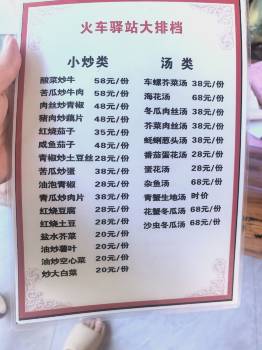 火车驿站大排档
小炒类
酸菜炒牛 58元/份
苦瓜炒牛肉 58元/份
肉丝炒青椒 48元/份
猪肉炒藕片 48元/份
红烧茄子 35元/份
咸鱼茄子 48元/份
青椒炒土豆丝 28元/份
苦瓜炒蛋 38元/份
油泡青椒 28元/份
青瓜炒肉片 38元/份
红烧豆腐 28元/份
红烧土豆 28元/份
盐水芥菜 20元/份
油炒薯叶 20元/份
油炒空心菜 20元/份
炒大白菜 20元/份
汤类
车螺芥菜汤 38元/份
海花汤 68元/份
冬瓜肉丝汤 38元/份
芥菜肉丝汤 38元/份
蚝蜊葱头汤 38元/份
番茄蛋花汤 28元/份
蛋花汤 28元/份
杂鱼汤 68元/份
青蟹生地汤 时价
花蟹冬瓜汤 68元/份
沙虫冬瓜汤 68元/份